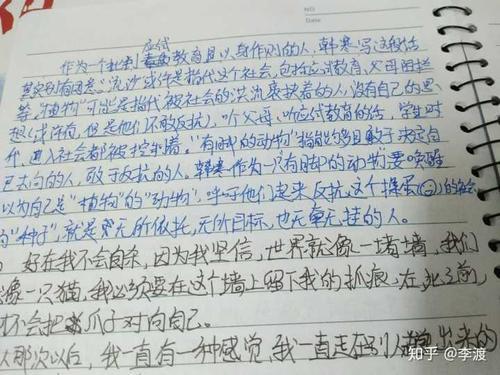 NO
Date
应试
作为一个批判教育且以身作则的人，韩寒写这段话
其实别有用意：“流沙”或许是指代这个社会，包括应试教育、父母阻拦
等，“植物”可能是指代被社会的洪流裹挟着的人，没有自己的思
想（或许有，但是他们不敢反抗），听父母、听应试教育的话，学生时
代，进入社会都被控制着，“有脚的动物”指能够且敢于决定自
己去向的人，敢于反抗的人。韩寒作为一只有脚的动物要唤醒
以为自己是“植物”的“动物”，呼吁他们起来反抗这个操蛋的社会
的“种子”，就是无所依托，无所目标，也无牵无挂的人。
好在我不会自杀，因为我坚信，世界就像一堵墙，我们
像一只猫，我必须要在这个墙上留下我的抓痕，在此之前，
才不会把爪子对向自己。
从那次以后，我一直有一种感觉，我一直走在别人出来的
知乎 @李渡